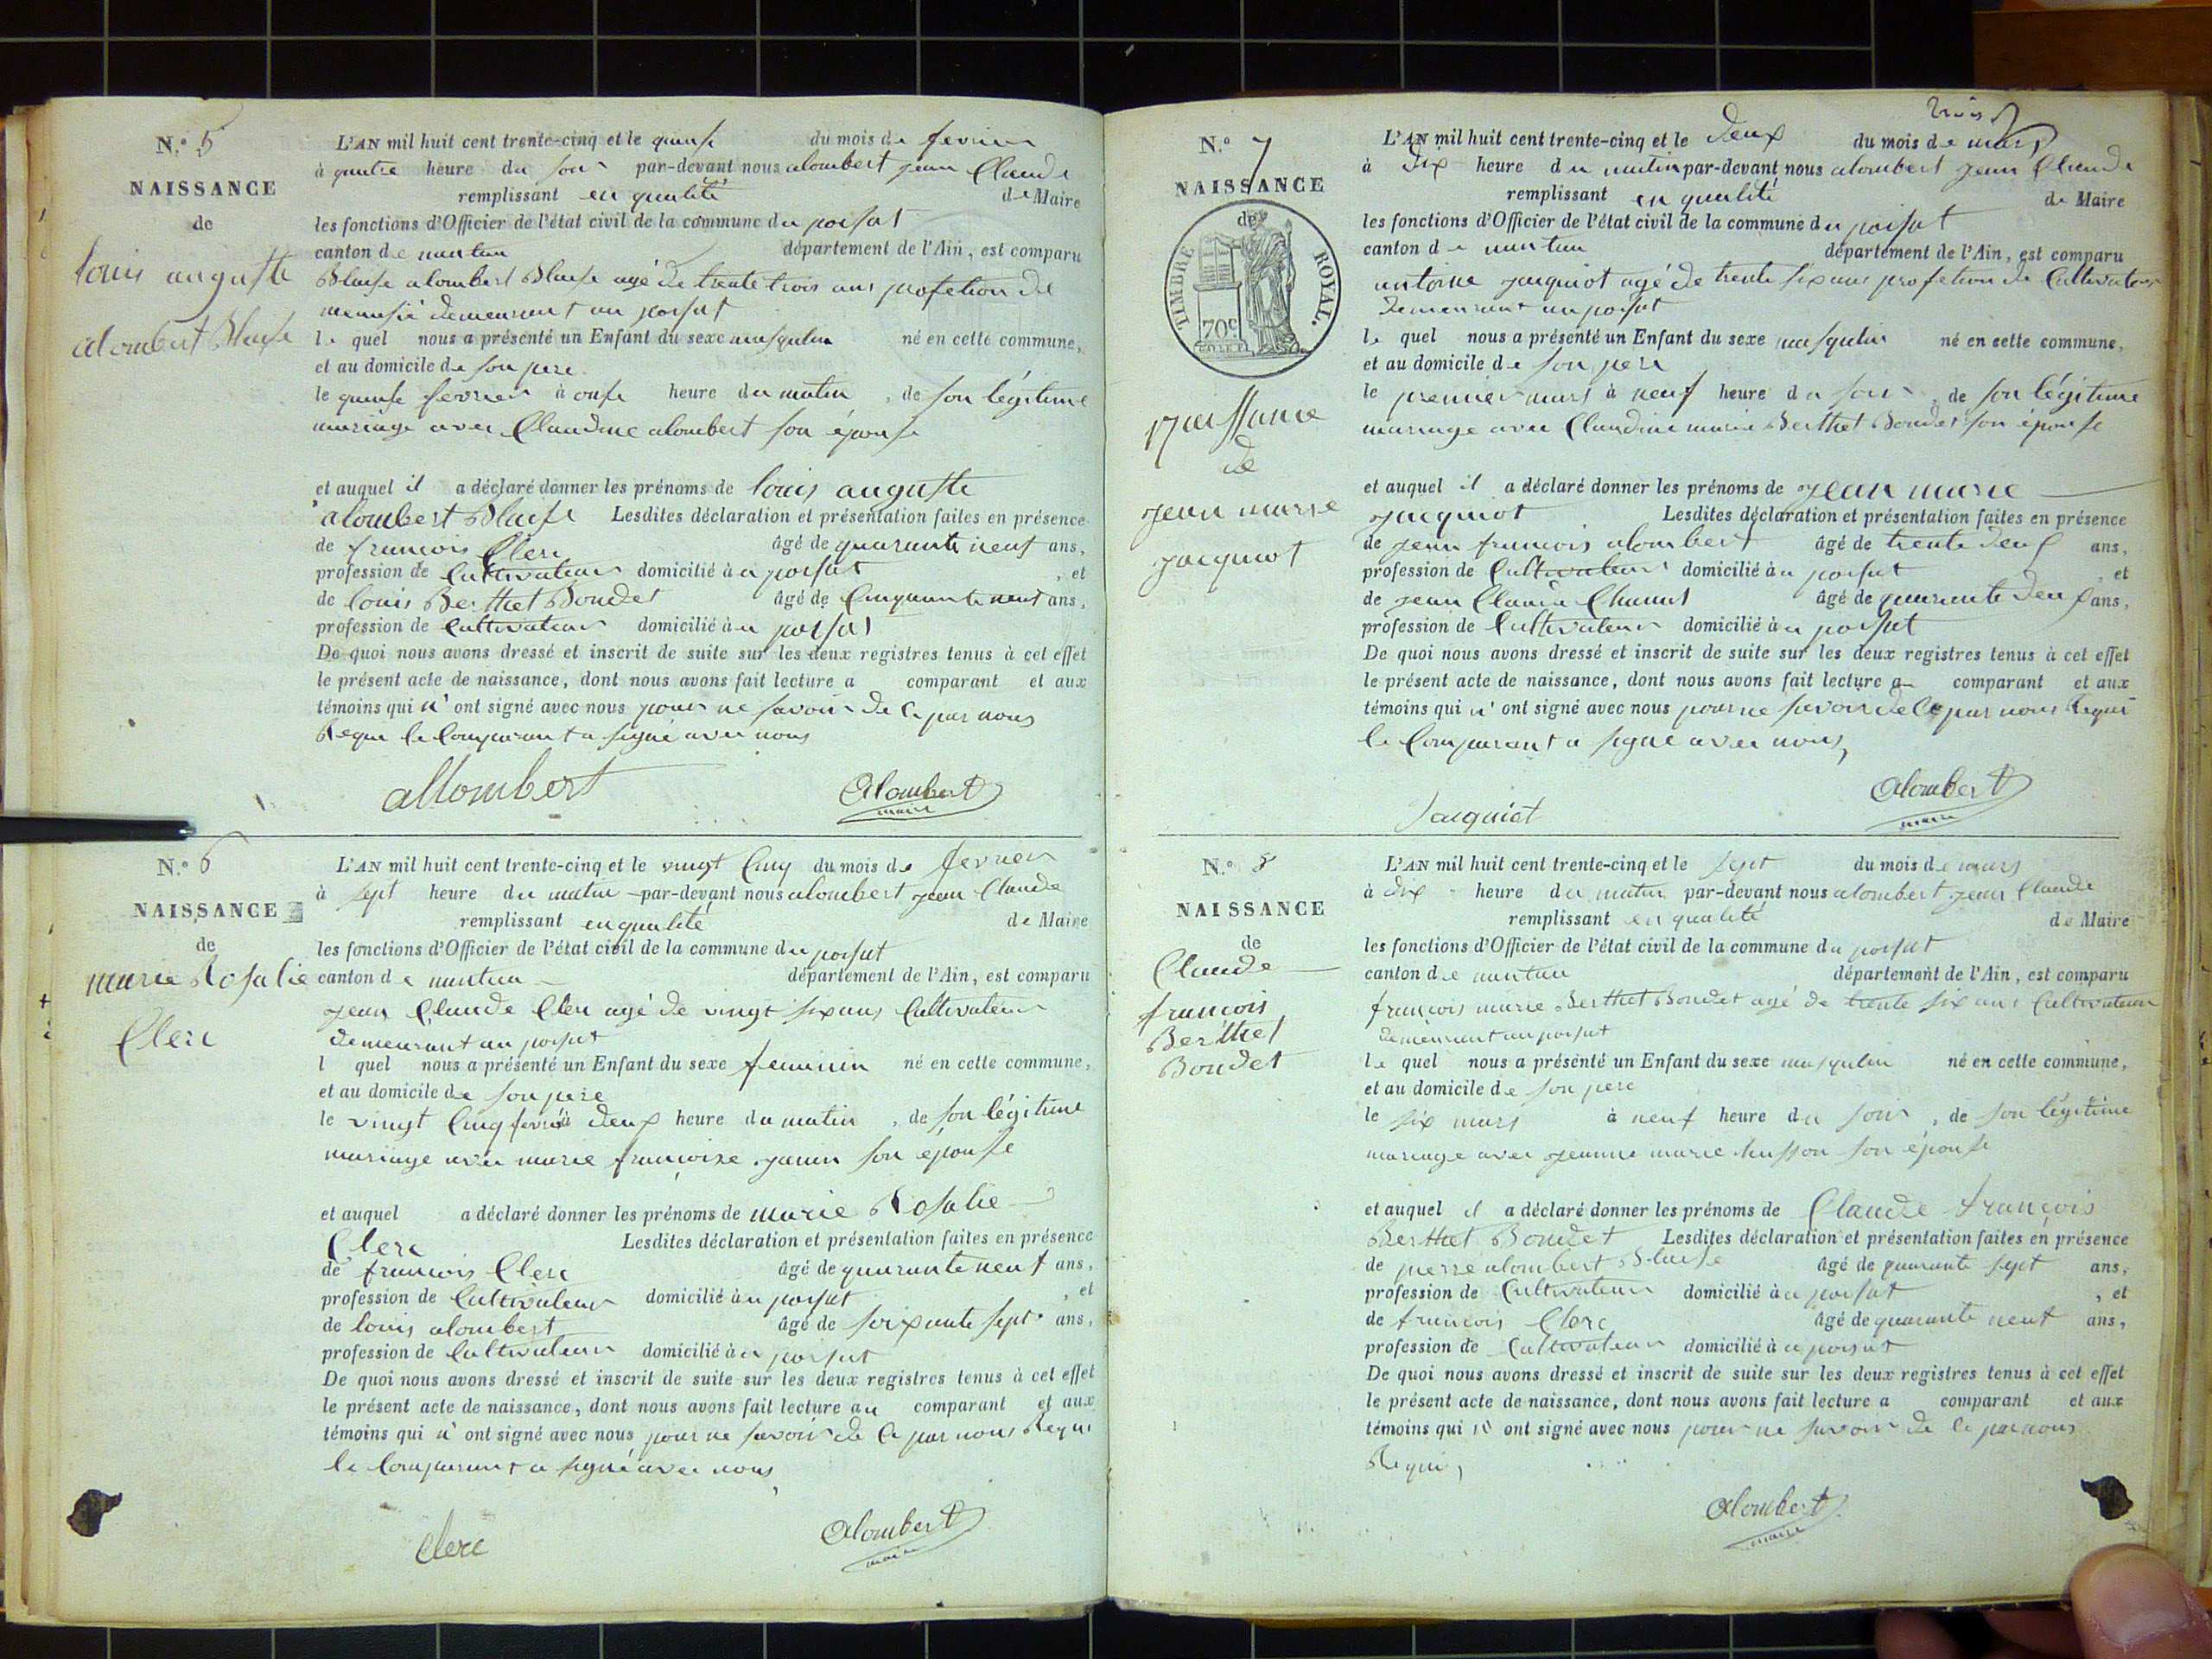 N.º 5
NAISSANCE
de
louis auguste
alombert Blaise
L'AN mil huit cent trente-cinq et le quinse du mois de fevrier
à quatre heure du soir par-devant nous alombert jean Claude
remplissant en qualité de Maire
les fonctions d'Officier de l'état civil de la commune du poisat
canton de nantua département de l'Ain, est comparu
Blaise alombert Blaise agé de trente trois ans profetion de
demeurant au poisat
le quel nous a présenté un Enfant du sexe masqulin né en cette commune,
et au domicile de son pere
le quinse fevrier à onse heure du matin, de son légitime
mariage avec Claudine alombert son épouse
et auquel il a déclaré donner les prénoms de louis auguste
alombert Blaise Lesdites déclaration et présentation faites en présence
de francois Clerc âgé de quarante neuf ans,
profession de Cultivateur domicilié à u poisat, et
de louis Berthet Boudet âgé de Cinquante neuf ans,
profession de Cultivateur domicilié à u poisat
De quoi nous avons dressé et inscrit de suite sur les deux registres tenus à cet effet
le présent acte de naissance, dont nous avons fait lecture a comparant et aux
témoins qui n' ont signé avec nous pour ne savoir de Ce par nous
Requi le Comparant a signé avec nous
allombert
Alombert
maire
N.º 6
NAISSANCE
de
marie Rosalie
Clerc
L'AN mil huit cent trente-cinq et le vingt Cinq du mois de fevrier
à sept heure du matin par-devant nous alombert jean Claude
remplissant en qualité de Maire
les fonctions d'Officier de l'état civil de la commune du poisat
canton de nantua département de l'Ain, est comparu
jean Claude Clerc agé de vingt six ans Cultivateur
demeurant au poisat
l quel nous a présenté un Enfant du sexe feminin né en cette commune,
et au domicile de son pere
le vingt Cinq à deux heure du matin, de son légitime
mariage avec marie françoise son épouse
et auquel a déclaré donner les prénoms de marie Rosalie
Clerc Lesdites déclaration et présentation faites en présence
de francois Clerc âgé de quarante neuf ans,
profession de Cultivateur domicilié à u poisat, et
de louis alombert âgé de soixante sept ans,
profession de Cultivateur domicilié à u poisat
De quoi nous avons dressé et inscrit de suite sur les deux registres tenus à cet effet
le présent acte de naissance, dont nous avons fait lecture au comparant et aux
témoins qui n' ont signé avec nous pour ne savoir de Ce par nous Requi
le Comparant a signé avec nous
Clerc
Alombert
maire
trois
N.º 7
NAISSANCE
de
TIMBRE ROYAL.
70c
Naissance
de
jean marie
jacquiot
L'AN mil huit cent trente-cinq et le deux du mois de mars
à dix heure du matin par-devant nous alombert jean Claude
remplissant en qualité de Maire
les fonctions d'Officier de l'état civil de la commune du poisat
canton de nantua département de l'Ain, est comparu
antoine jacquiot agé de trente six ans profetion de Cultivateur
demeurant au poisat
le quel nous a présenté un Enfant du sexe masqulin né en cette commune,
et au domicile de son pere
le premier mars à neuf heure du soir, de son légitime
mariage avec Claudine marie Berthet Boudet son épouse
et auquel il a déclaré donner les prénoms de jean marie
jacquiot Lesdites déclaration et présentation faites en présence
de jean francois alombert âgé de trente deux ans,
profession de Cultivateur domicilié à u poisat, et
de jean Claude âgé de quarante deux ans,
profession de Cultivateur domicilié à u poisat
De quoi nous avons dressé et inscrit de suite sur les deux registres tenus à cet effet
le présent acte de naissance, dont nous avons fait lecture a comparant et aux
témoins qui n' ont signé avec nous pour ne savoir de Ce par nous Requi
le Comparant a signé avec nous,
Jacquiot
Alombert
maire
N.º 8
NAISSANCE
de
Claude
francois
Berthet
Boudet
L'AN mil huit cent trente-cinq et le sept du mois de mars
à dix heure du matin par-devant nous alombert jean Claude
remplissant en qualité de Maire
les fonctions d'Officier de l'état civil de la commune du poisat
canton de nantua département de l'Ain, est comparu
francois marie Berthet Boudet agé de trente six ans Cultivateur
demeurant au poisat
le quel nous a présenté un Enfant du sexe masqulin né en cette commune,
et au domicile de son pere
le six mars à neuf heure du soir, de son légitime
mariage avec jeanne marie husson son épouse
et auquel il a déclaré donner les prénoms de Claude françois
Berthet Boudet Lesdites déclaration et présentation faites en présence
de pierre alombert Blaise âgé de quarante sept ans,
profession de Cultivateur domicilié à u poisat, et
de francois Clerc âgé de quarante neuf ans,
profession de Cultivateur domicilié à u poisat
De quoi nous avons dressé et inscrit de suite sur les deux registres tenus à cet effet
le présent acte de naissance, dont nous avons fait lecture a comparant et aux
témoins qui n' ont signé avec nous pour ne savoir de Ce par nous
Requi,
Alombert
maire